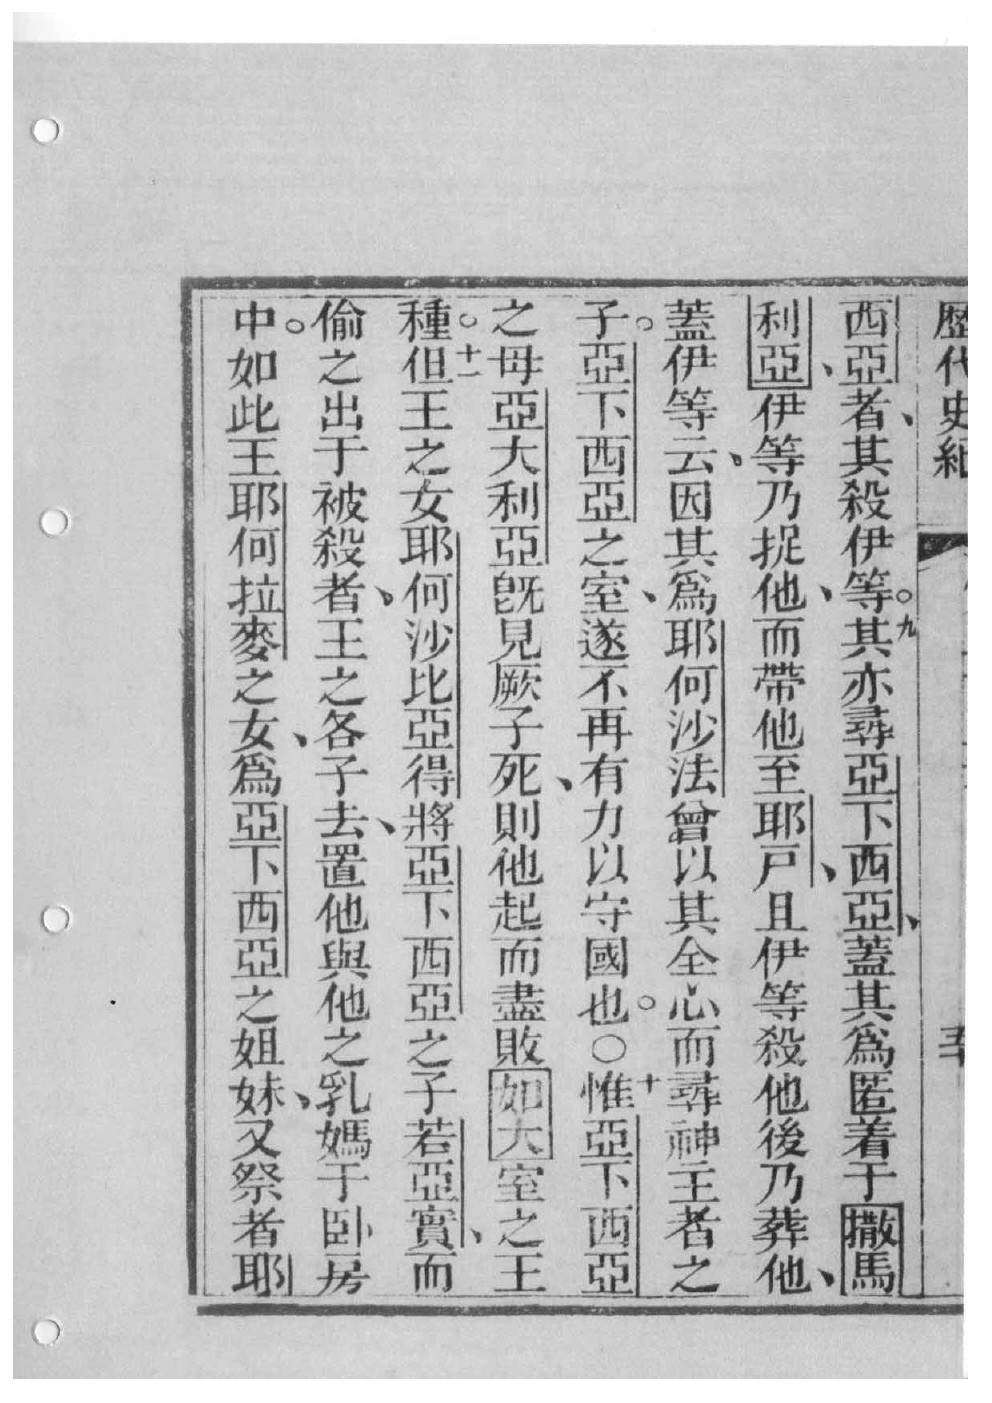 歷代史紀
西亞者、其殺伊等。九其亦尋亞下西亞、蓋其爲匿着于撒馬
利亞、伊等乃捉他、而帶他至耶戶、且伊等殺他後乃葬他、
蓋伊等云。因其爲耶何沙法曾以其全心而尋神主者之
子。亞下西亞之室、遂不再有力以守國也。○十惟亞下西亞
之母亞大利亞旣見厥子死、則他起而盡敗如大室之王
種。十一但王之女耶何沙比亞得將亞下西亞之子若亞實、而
偷之出于被殺者、王之各子去、置他與他之乳媽于卧房
中。如此王耶何拉麥之女、爲亞下西亞之姐妹、又祭者耶